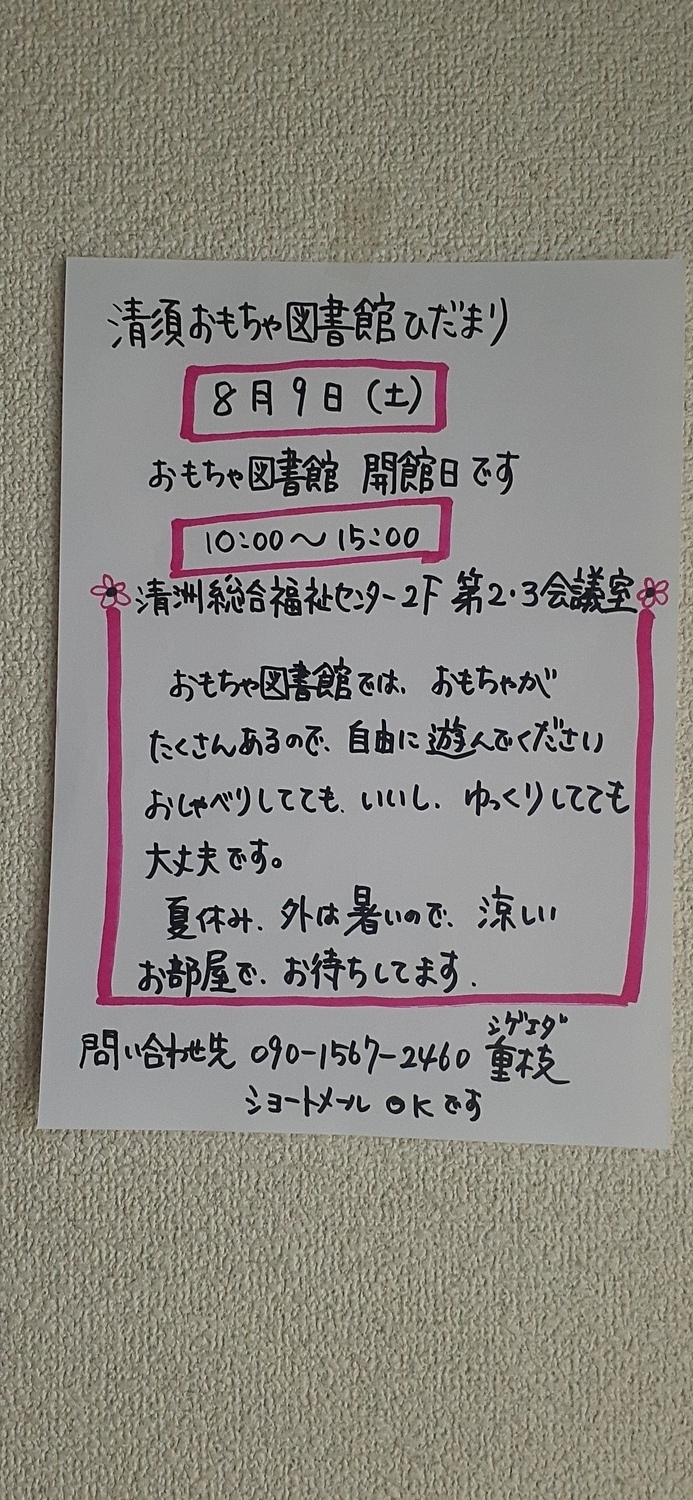 清須おもちゃ図書館ひだまり
8月9日(土)
おもちゃ図書館 開館日です
10:00〜15:00
清洲総合福祉センター2F 第2・3会議室
おもちゃ図書館では、おもちゃが
たくさんあるので、自由に遊んでください
おしゃべりしてても、いいし、ゆっくりしてても
大丈夫です。
夏休み、外は暑いので、涼しい
お部屋で、お待ちしてます.
シゲエダ
問い合わせ先 090-1567-2460 重枝
ショートメール OKです